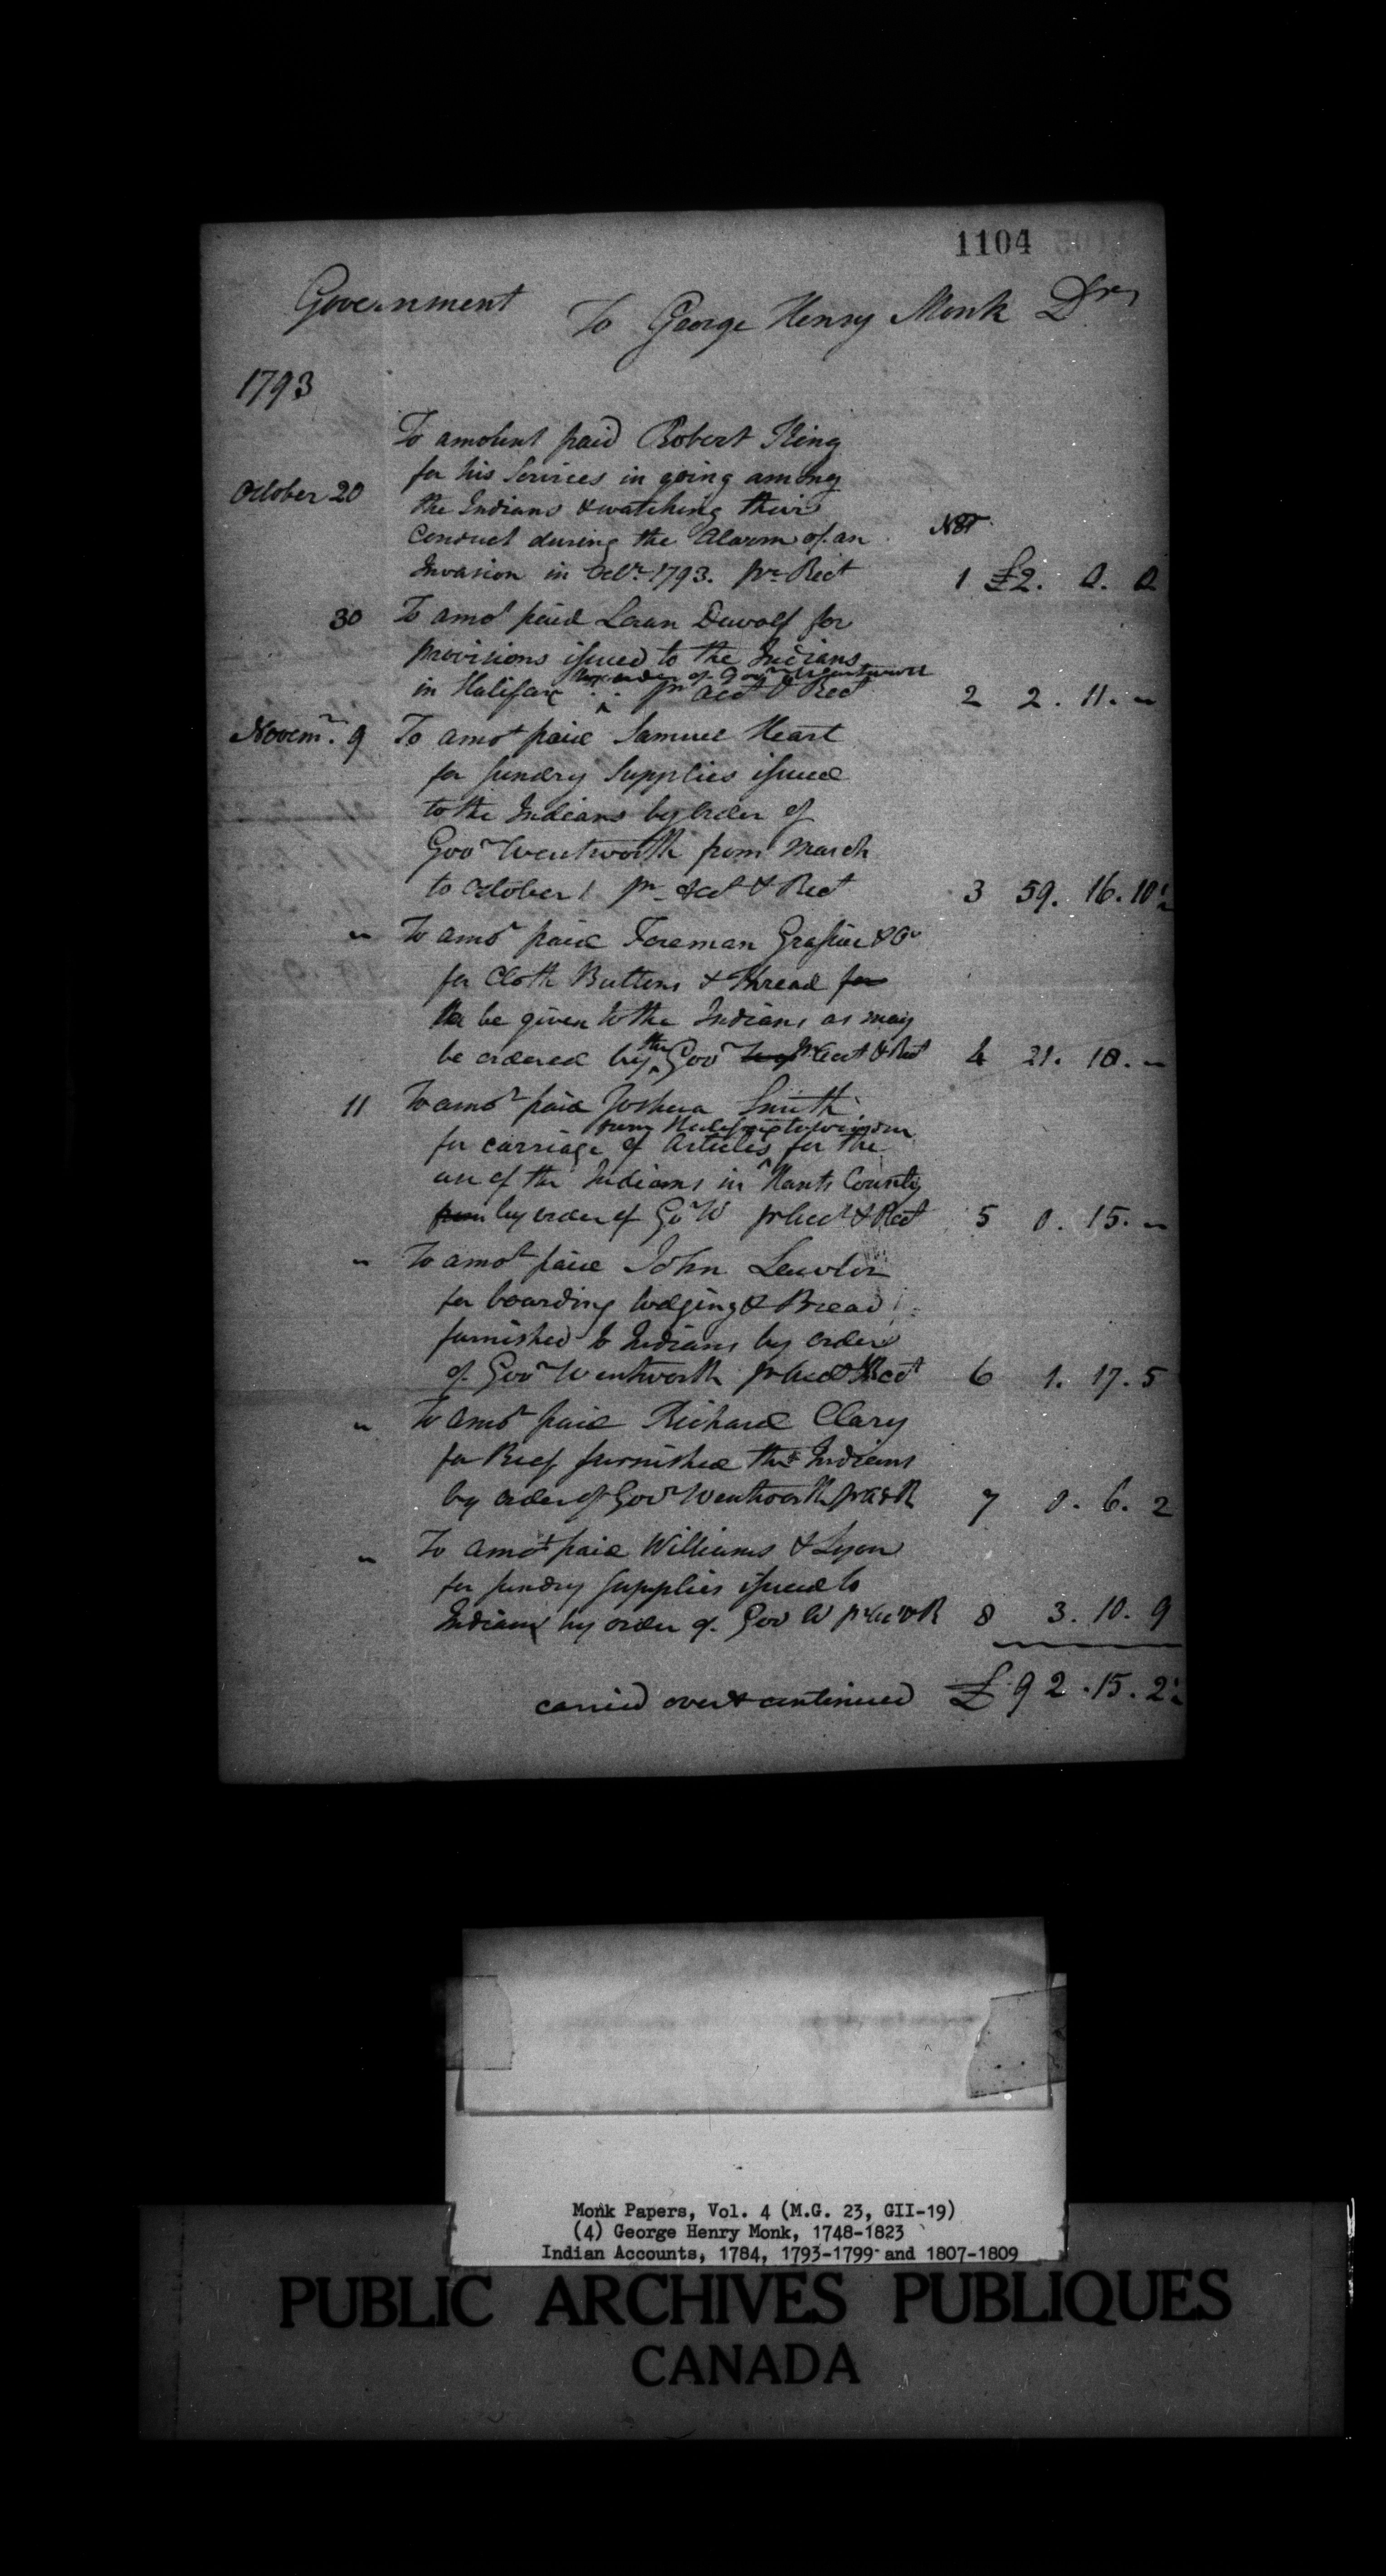 1104
Government To George Henry Monk Drs
1793
To amount paid Robert King
for his Services in going among
October 20 the Indians & watching their
Conduct during the Alarm of an
Invasion in Octr 1793. pr Rect 1 £2. 0. 0
30 To amot paid Loran Dewolf for
provisions issued to the Indians
by order of Govr Wentworth
in Halifax pr Acct & Rect 2 2. 11. "
Novemr. 9 To amot paid Samuel Heart
for sundry Supplies issued
to the Indians by Order of
Govr Wentworth from March
to October 1 pr Acct & Rect 3 59. 16. 10½
" To amot paid Foreman Grassie & Co
for Cloth Buttons & Thread for
to be given to the Indians as may
be ordered by the Govr pr Acct & Rect 4 21. 18. "
11 To amot paid Joshua Smith
from Halifax to Windsor
for carriage of Articles for the
use of the Indians in Hants County
from by order of Gov W pr Acct & Rect 5 0. 15. "
" To amot paid John Lawlor
for boarding lodging & Bread
furnished to Indians by order
of Govr Wentworth pr Acct & Rect 6 1. 17. 5
" To amot paid Richard Clary
for Beef furnished the Indians
by order of Govr Wentworth pr A & R 7 0. 6. 2
" To amot paid Williams & Lyon
for sundry supplies issued to
Indians by order of Gov W pr Acct & R 8 3. 10. 9
carried over & continued £92. 15. 2½
Monk Papers, Vol. 4 (M.G. 23, GII-19)
(4) George Henry Monk, 1748-1823
Indian Accounts, 1784, 1793-1799 and 1807-1809
PUBLIC ARCHIVES PUBLIQUES
CANADA